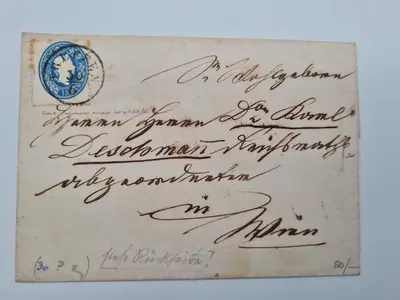 Sr. Wohlgeboren
Herrn Herrn Dor Karl
Deschmann Reichsraths
abgeordneter
in
Wien
siehe Rückseite!
80/-